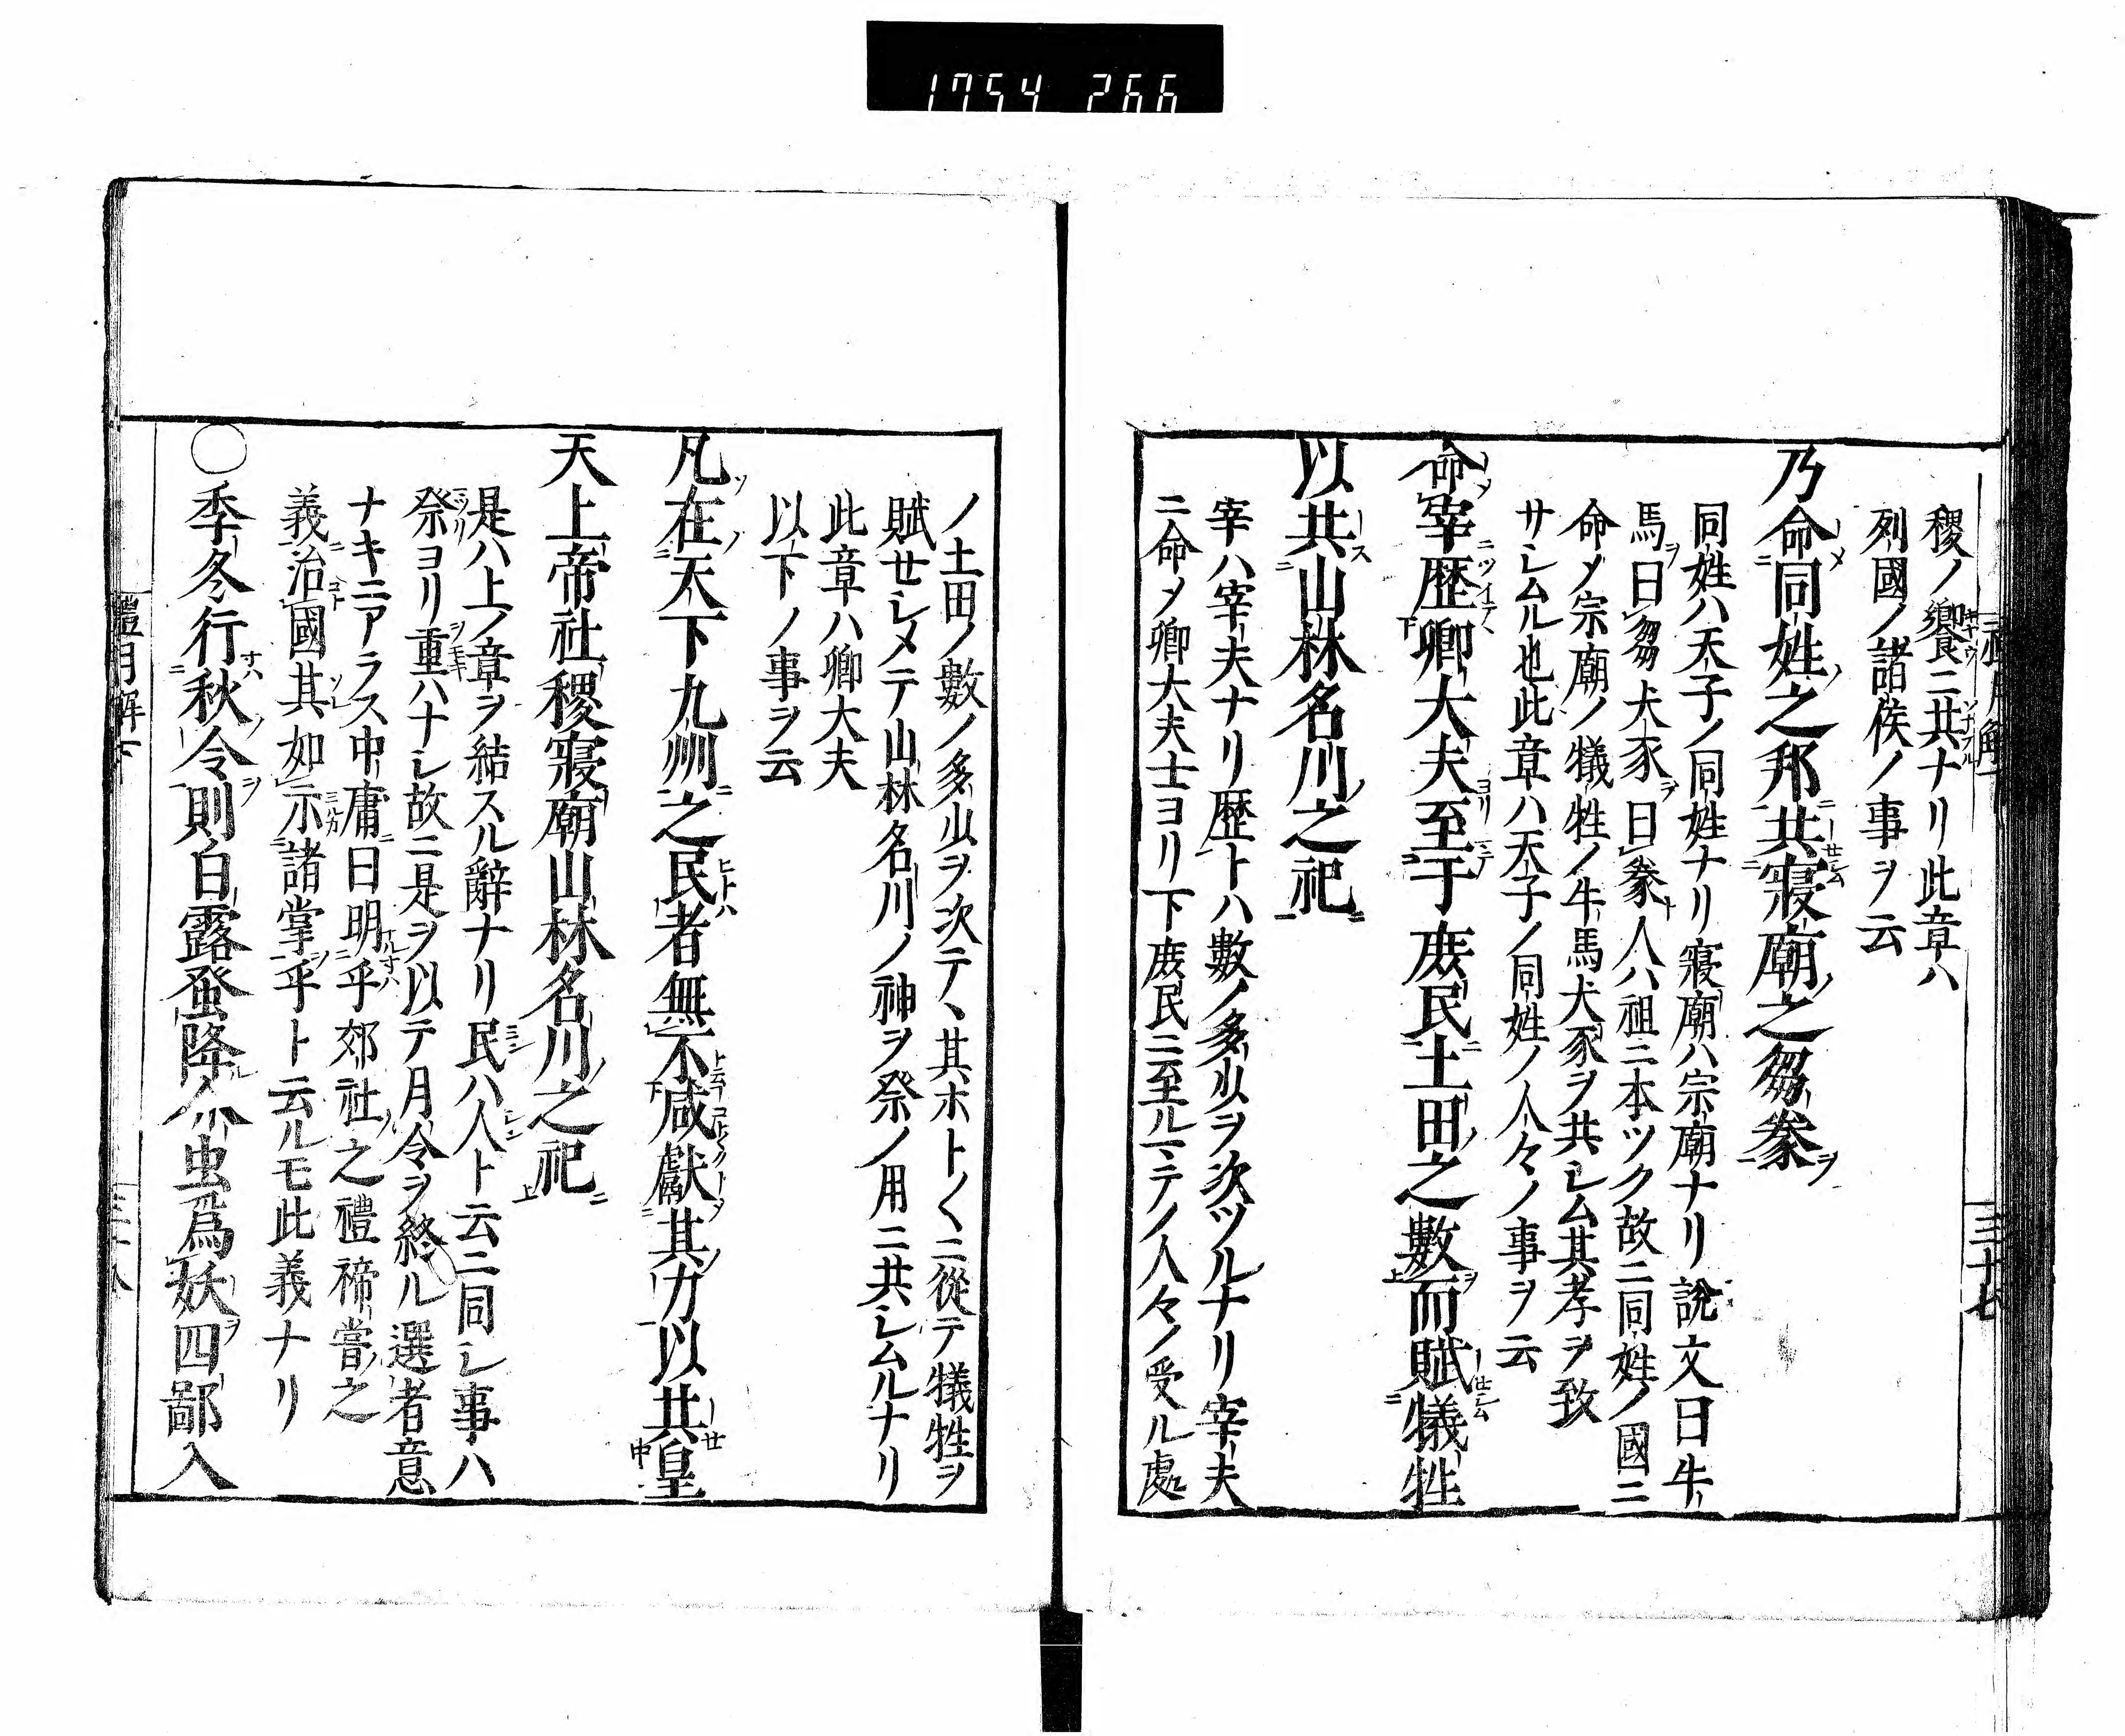 1754 266
稷ノ饗ニ共ナリ此章ハ
列國ノ諸侯ノ事ヲ云
乃命同姓之邦共寢廟之芻豢
同姓ハ天子ノ同姓ナリ寢廟ハ宗廟ナリ說文曰牛
馬曰芻犬豕曰豢人ハ祖ニ本ツク故ニ同姓ノ國ニ
命メ宗廟ノ犧牲ノ牛馬犬豕ヲ共レム其孝ヲ致
サレムル也此章ハ天子ノ同姓ノ人々ノ事ヲ云
命宰歷卿大夫至于庶民土田之數而賦犧牲
以共山林名川之祀
宰ハ宰夫ナリ歷トハ數ノ多少ヲ次ツルナリ宰夫
ニ命メ卿大夫士ヨリ下庶民ニ至ルマテノ人々ノ受ル處
三十七
ノ土田ノ數ノ多少ヲ次テヽ其ホト〱ニ從テ犧牲ヲ
賦せレメテ山林名川ノ神ヲ祭ノ用ニ共レムルナリ
此章ハ卿大夫
以下ノ事ヲ云
凡在天下九州之民者無不咸獻其力以共皇
天上帝社稷寢廟山林名川之祀
是ハ上ノ章ヲ結スル辭ナリ民ハ人ト云ニ同レ事ハ
祭ヨリ重ハナレ故ニ是ヲ以テ月令ヲ終ル選者意
ナキニアラス中庸曰明乎郊社之禮禘嘗之
義治國其如示諸掌乎ト云ルモ此義ナリ
○季冬行秋令則白露蚤降介虫爲妖四鄙入
禮月解下